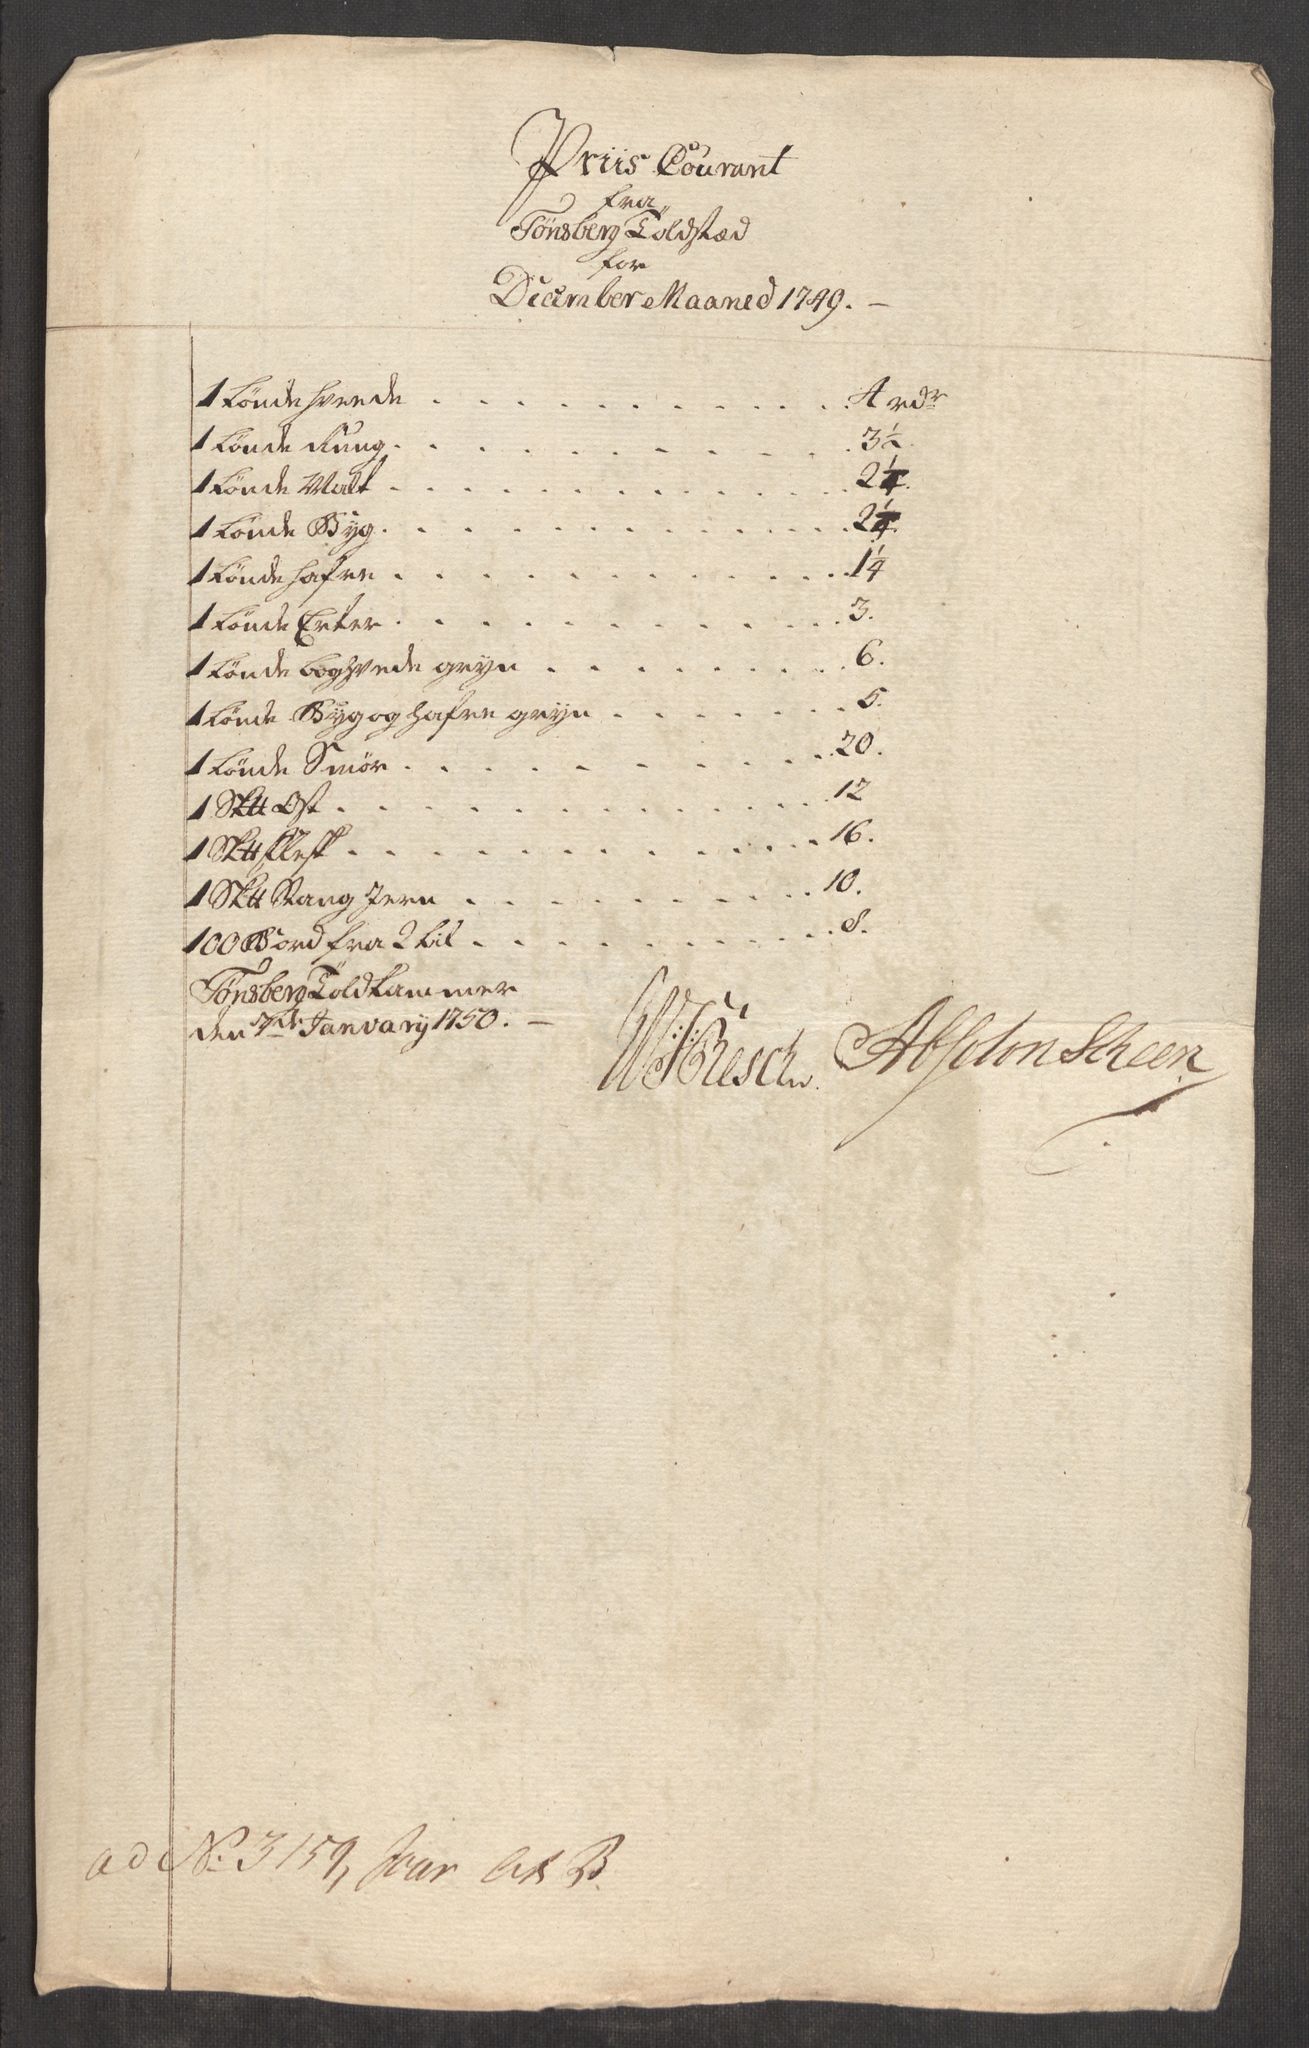 Priis Courant
fra
Tønsberg Toldstæd
for
December Maaned 1749. —
1 tønde hveede . . . . . . . . . . . . 4 rdr
1 tønde Rung . . . . . . . . . . . . 3½.
1 tønde Malt . . . . . . . . . . . . 2¼.
1 tønde Byg . . . . . . . . . . . . 2¼.
1 tønde hafre . . . . . . . . . . . . 1¼
1 tønde Erter . . . . . . . . . . . . 3.
1 tønde boghvede gryn . . . . . . . . 6.
1 tønde Byg og hafre gryn . . . . . . . 5.
1 tønde Smør . . . . . . . . . . 20.
1 Sk℔ Ost . . . . . . . . . . . . 12
1 Sk℔ flesk . . . . . . . . . . . . 16.
1 Sk℔ Stang Jern . . . . . . . . . 10.
100 Bord fra 2 til . . . . . . . . . . 8.
Tønsberg Toldkammer
den 7de January 1750. —
Absolon Scheen
ad No. 3159, Lit B.